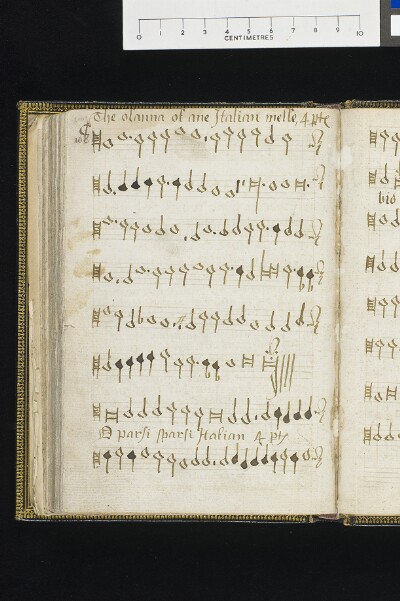 0 1 2 3 4 5 6 7 8 9 10
CENTIMETRES
The osanna of ane Italian messe, 4 pts
O parsi sparsi Italian 4 pts
bid